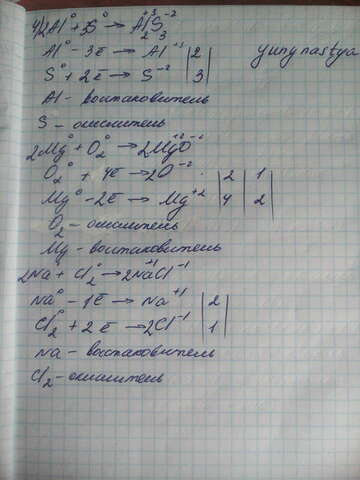 4) 2Al⁰ + 3S⁰ → Al₂⁺³S₃⁻²
Al⁰ - 3ē → Al⁺³ | 2 |
S⁰ + 2ē → S⁻² | 3 |
yunynastya
Al - востановитель
S - окислитель
2Mg⁰ + O₂⁰ → 2Mg⁺²O⁻²
O₂⁰ + 4ē → 2O⁻² | 2 | 1 |
Mg⁰ - 2ē → Mg⁺² | 4 | 2 |
O₂ - окислитель
Mg - востановитель
2Na + Cl₂⁰ → 2Na⁺¹Cl⁻¹
Na⁰ - 1ē → Na⁺¹ | 2 |
Cl₂⁰ + 2ē → 2Cl⁻¹ | 1 |
Na - востановитель
Cl₂ - окислитель